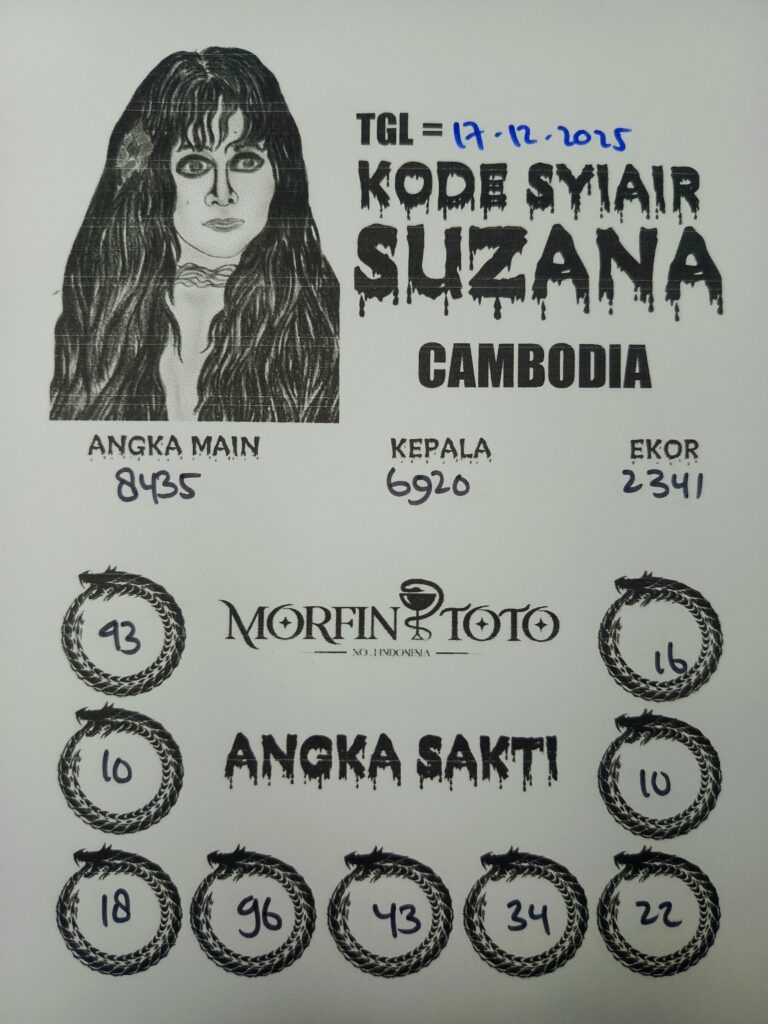 TGL = 17-12-2025
KODE SYIAIR
SUZANA
CAMBODIA
ANGKA MAIN KEPALA EKOR
8435 6920 2341
93 MORFIN TOTO 16
NO.1 INDONESIA
10 ANGKA SAKTI 10
18 96 43 34 22